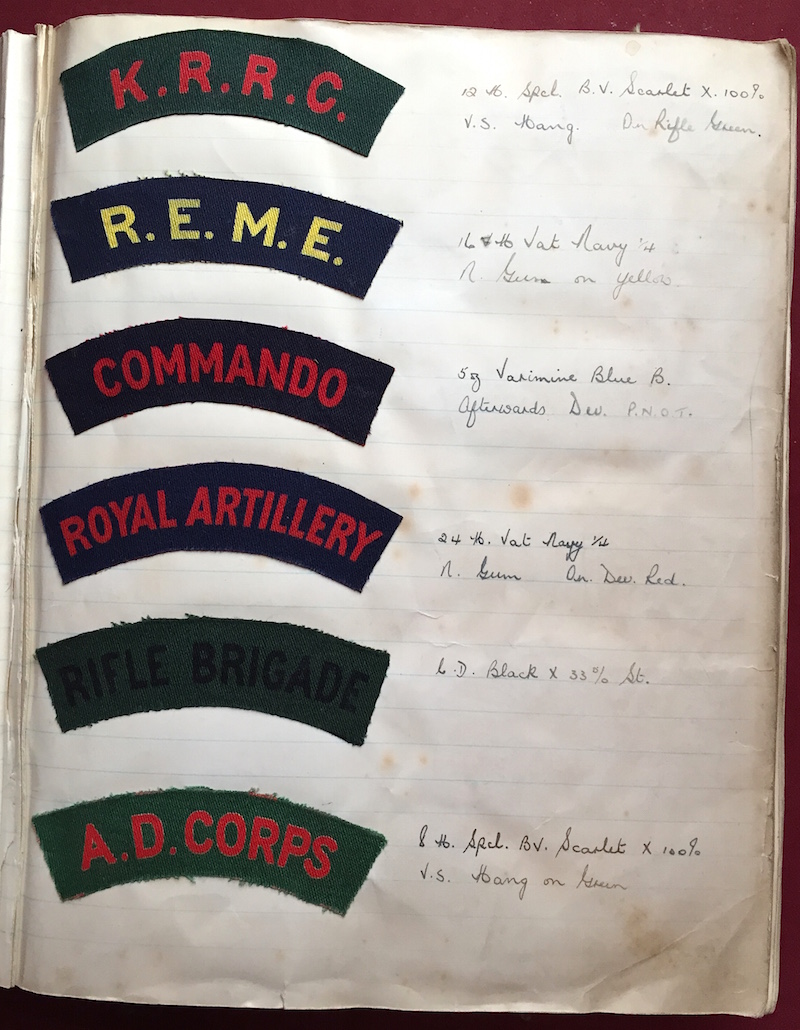 K.R.R.C.
12 lb. Spcl. B.V. Scarlet X. 100%
V.S. Hang. On Rifle Green.
R.E.M.E.
16 lb Vat Navy 1/4
N. Gum on yellow.
COMMANDO
Varimine Blue B.
Afterwards Dev. P.N.O.T.
ROYAL ARTILLERY
24 lb. Vat Navy 1/4
N. Gum On. Dev. Red.
RIFLE BRIGADE
D. Black X 33% St.
A.D. CORPS
8 lb. Spcl. BV. Scarlet X 100%
V.S. Hang on Green